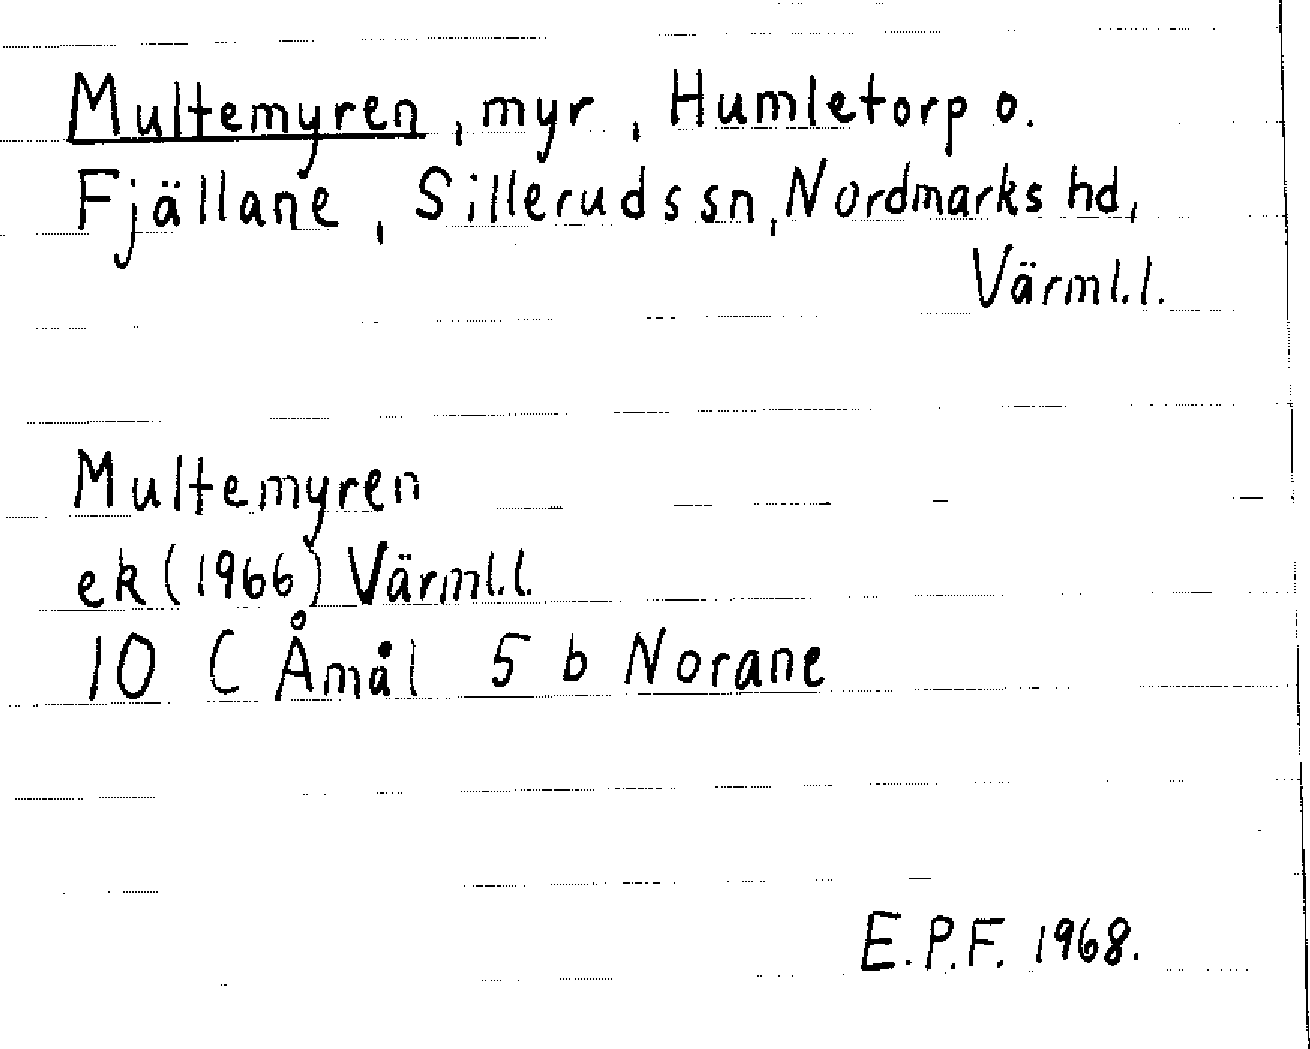 Multemyren, myr, Humletorp o.
Fjällane, Silleruds sn, Nordmarks hd,
Värml.l.
Multemyren
ek (1966) Värml.l.
10 C Åmål 5 b Norane
E.P.F. 1968.